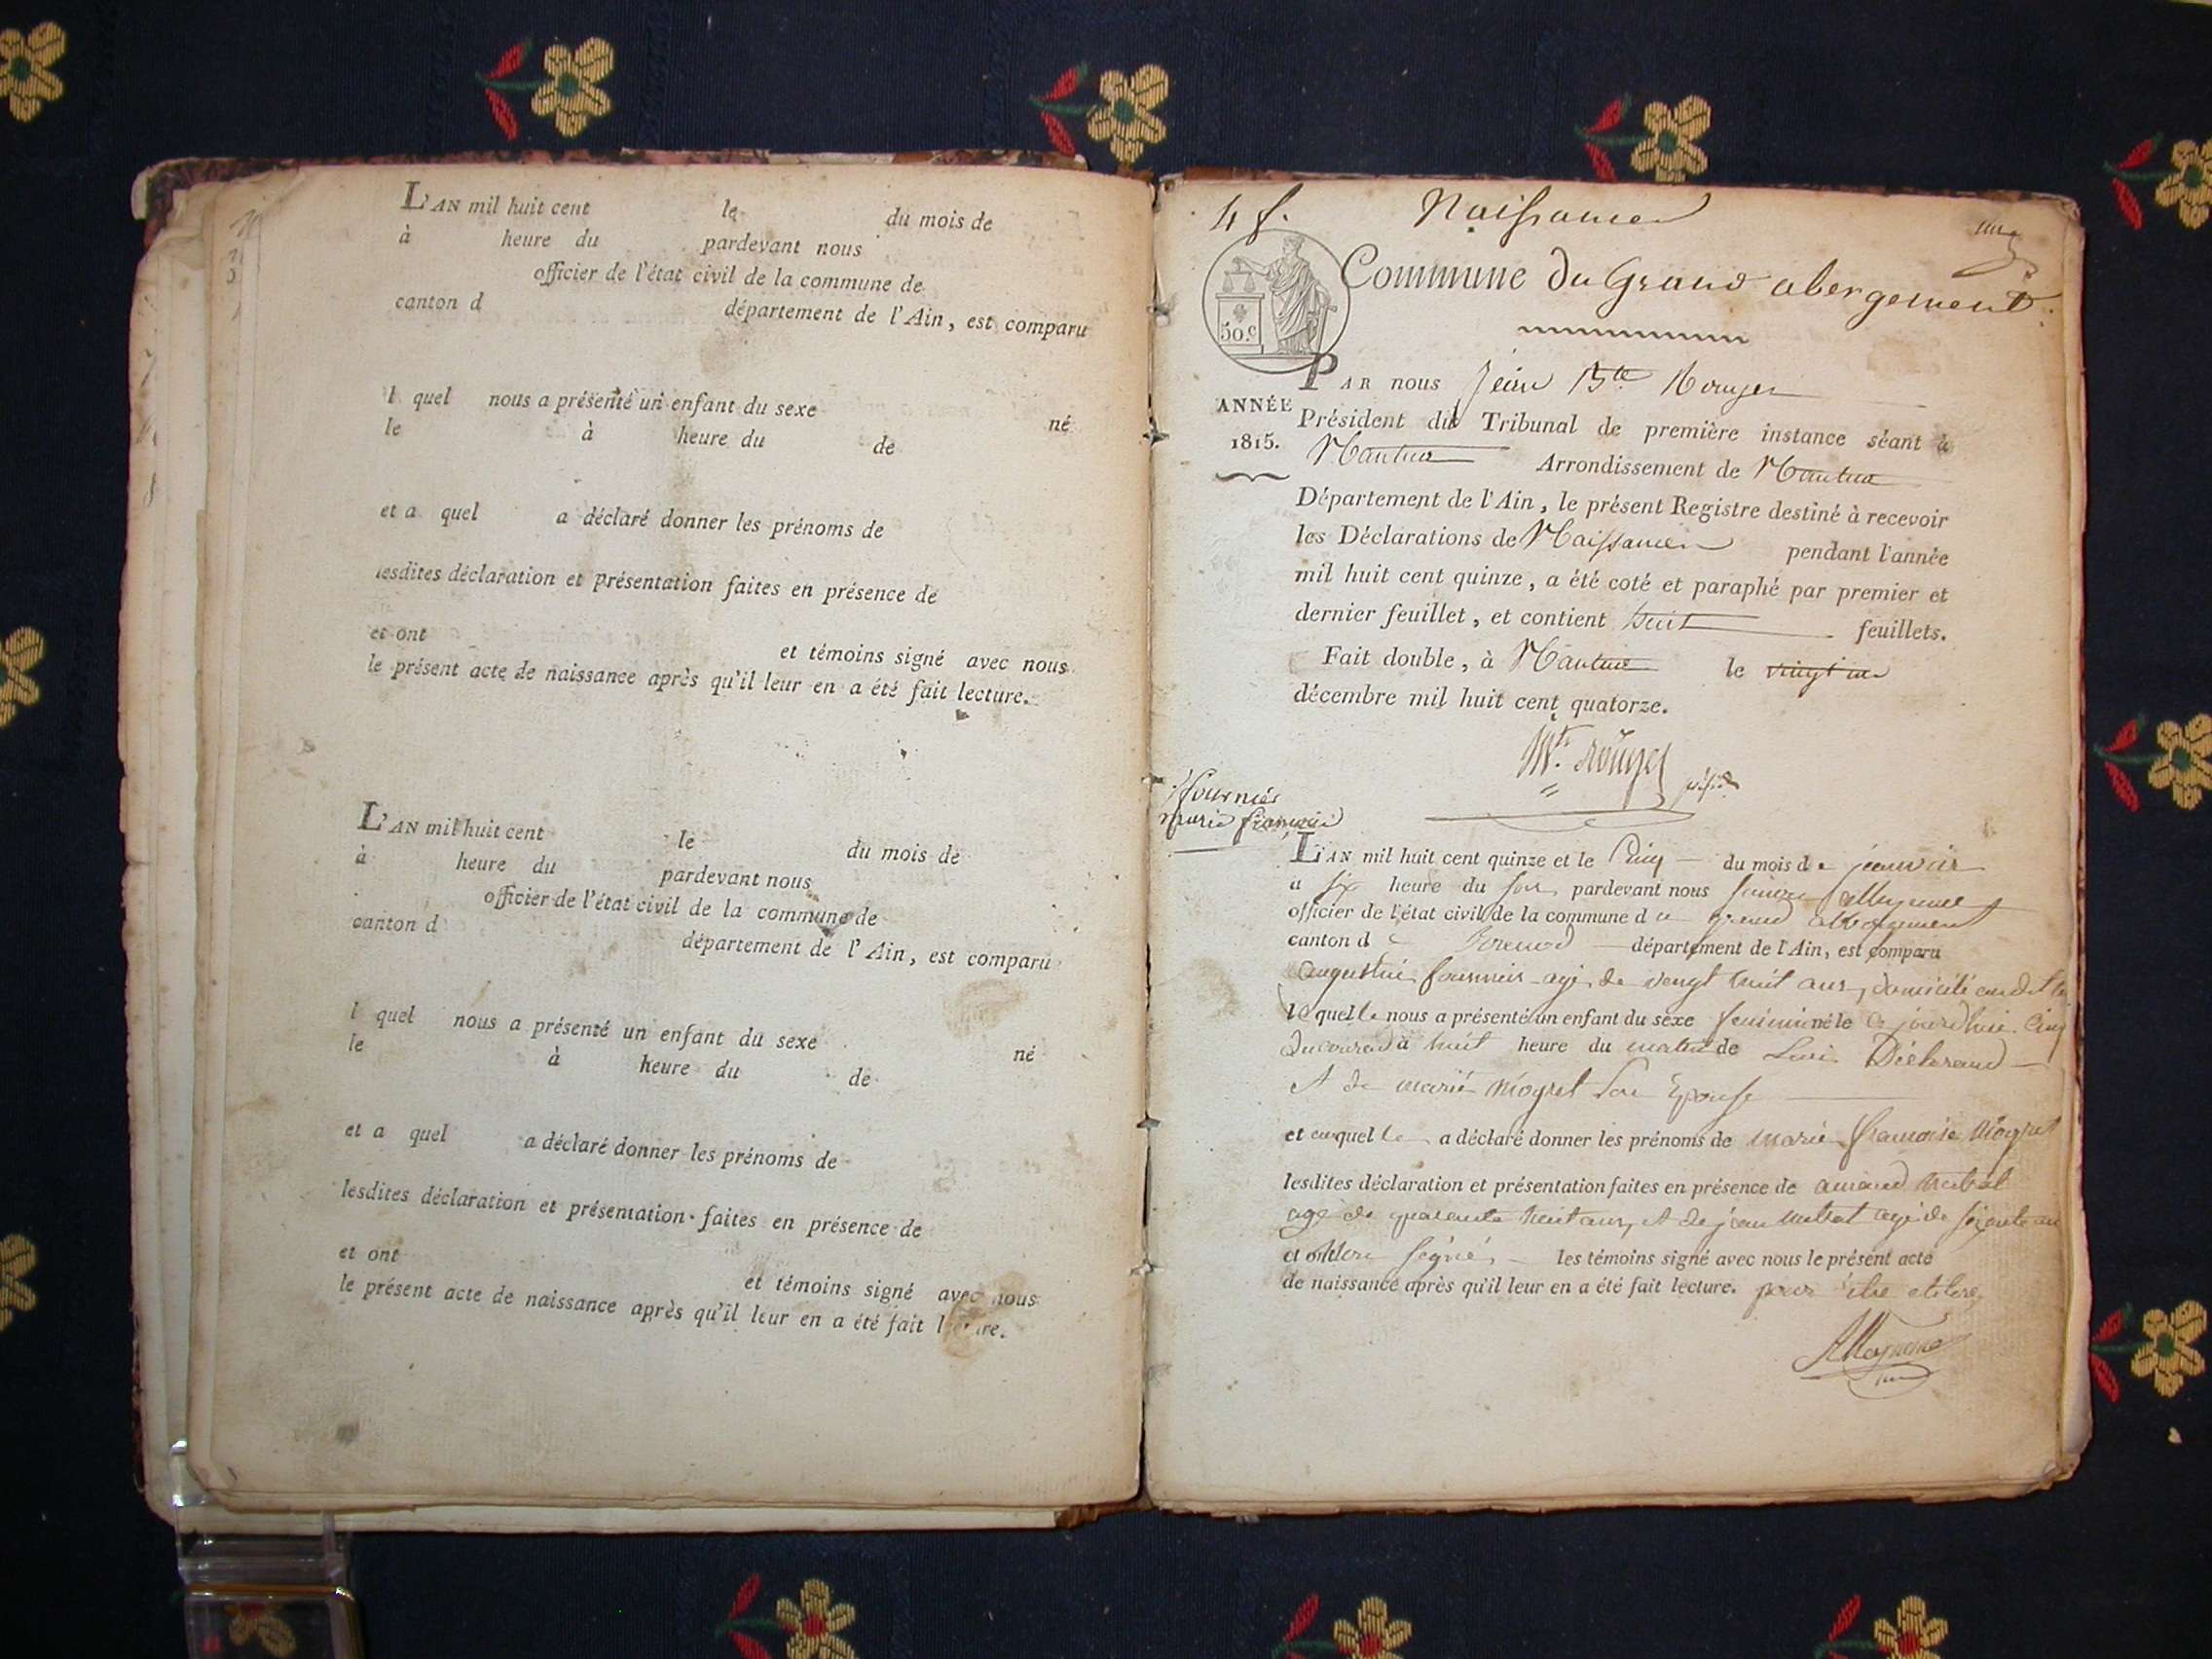 L'AN mil huit cent le du mois de
à heure du pardevant nous
officier de l'état civil de la commune de
canton d département de l'Ain, est comparu
l quel nous a présenté un enfant du sexe né
le à heure du de
et a quel a déclaré donner les prénoms de
lesdites déclaration et présentation faites en présence de
et ont et témoins signé avec nous
le présent acte de naissance après qu'il leur en a été fait lecture.
L'AN mil huit cent le du mois de
à heure du pardevant nous
officier de l'état civil de la commune de
canton d département de l'Ain, est comparu
l quel nous a présenté un enfant du sexe né
le à heure du de
et a quel a déclaré donner les prénoms de
lesdites déclaration et présentation faites en présence de
et ont et témoins signé avec nous
le présent acte de naissance après qu'il leur en a été fait lecture.
Naissances
Commune du Grand abergement
50.c
PAR nous Jean Bte Rouyer
ANNÉE
1815.
Président du Tribunal de première instance séant à
Nantua Arrondissement de Nantua
Département de l'Ain, le présent Registre destiné à recevoir
les Déclarations de Naissances pendant l'année
mil huit cent quinze, a été coté et paraphé par premier et
dernier feuillet, et contient huit feuillets.
Fait double, à Nantua le vingt un
décembre mil huit cent quatorze.
Rouyer
fournier
marie françoise
L'AN mil huit cent quinze et le Cinq du mois de janvier
a six heure du soir pardevant nous
officier de l'état civil de la commune du grand abergement
canton de Brenod département de l'Ain, est comparu
augustin fournier agé de vengt huit ans, domicilié
lequelle nous a présenté un enfant du sexe feminin né le ce jourdhui Cinq
du courand à huit heure du matin de
et de marie mogret son Epouse
et auquelle a déclaré donner les prénoms de marie françoise mogret
lesdites déclaration et présentation faites en présence de
agé de quarante huit ans, et de jean agé de soixante ans
les témoins signé avec nous le présent acte
de naissance après qu'il leur en a été fait lecture. pour